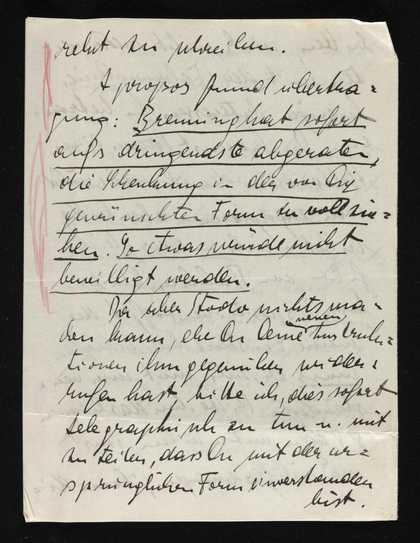 recht zu schreiben.
A propos Fundübertra=
gung: Brenning hat sofort
aufs dringendste abgeraten,
die Schenkung in der von Dir
gewünschten Form zu vollzie=
hen. So etwas würde nicht
bewilligt werden.
Da aber Stodo nichts ma=
chen kann, ehe Du Deine neuen Instruk=
tionen ihm gegenüber wider=
rufen hast, bitte ich, dies sofort
telegraphisch zu tun u. mit
zu teilen, dass Du mit der ur=
sprünglichen Form einverstanden
bist.